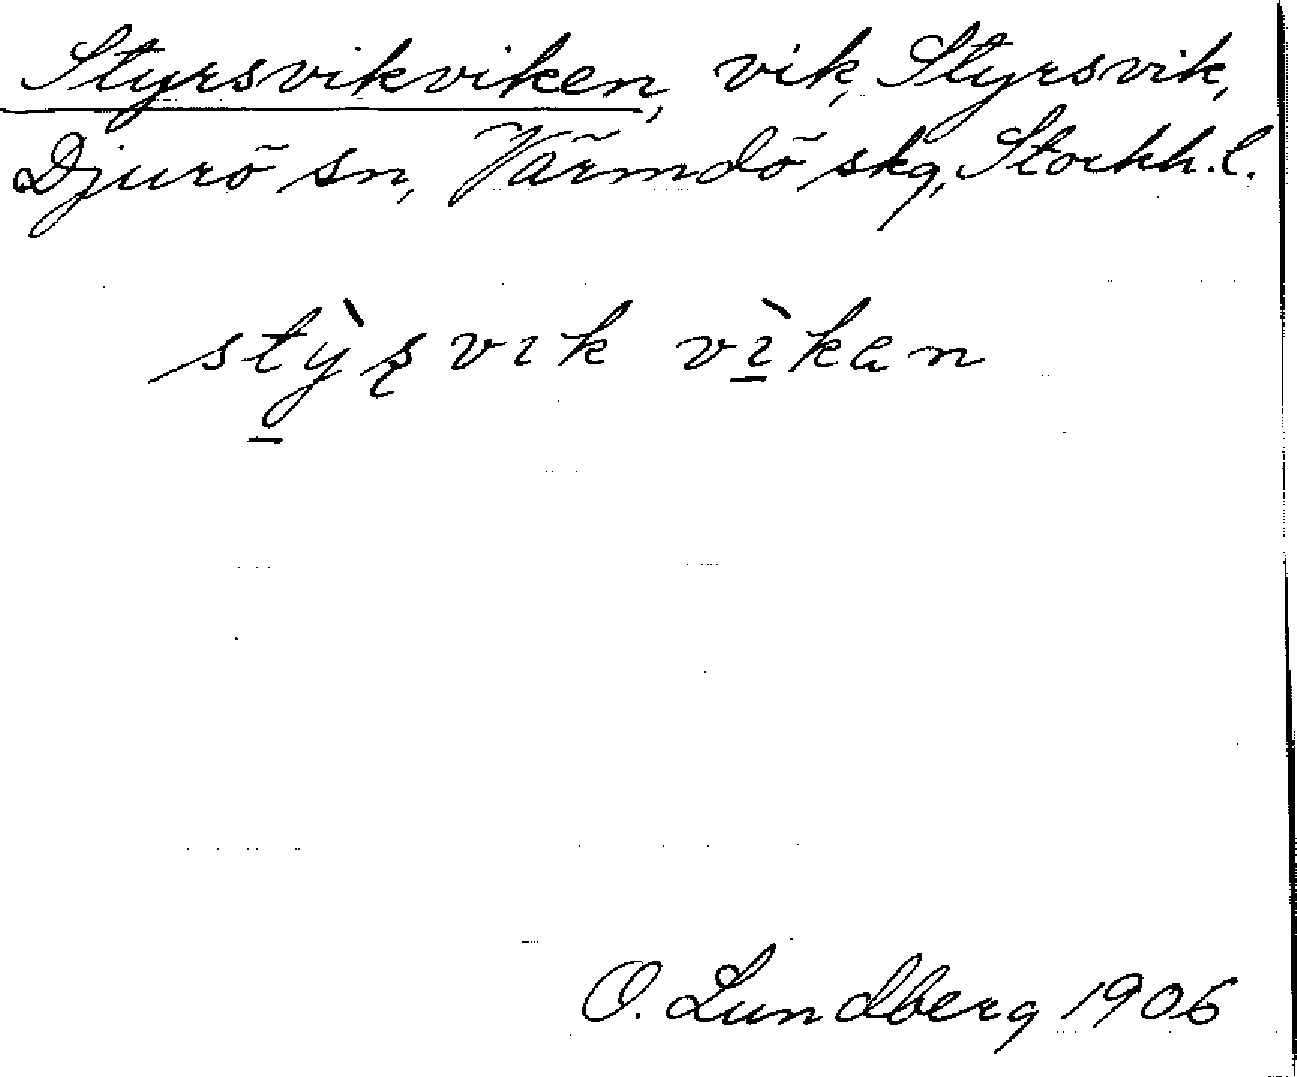 Styrsvikviken, vik, Styrsvik,
Djurö sn, Värmdö skg, Stockh. l.
stỳ̠ʂvık vı̠̀kɐn
O. Lundberg 1906